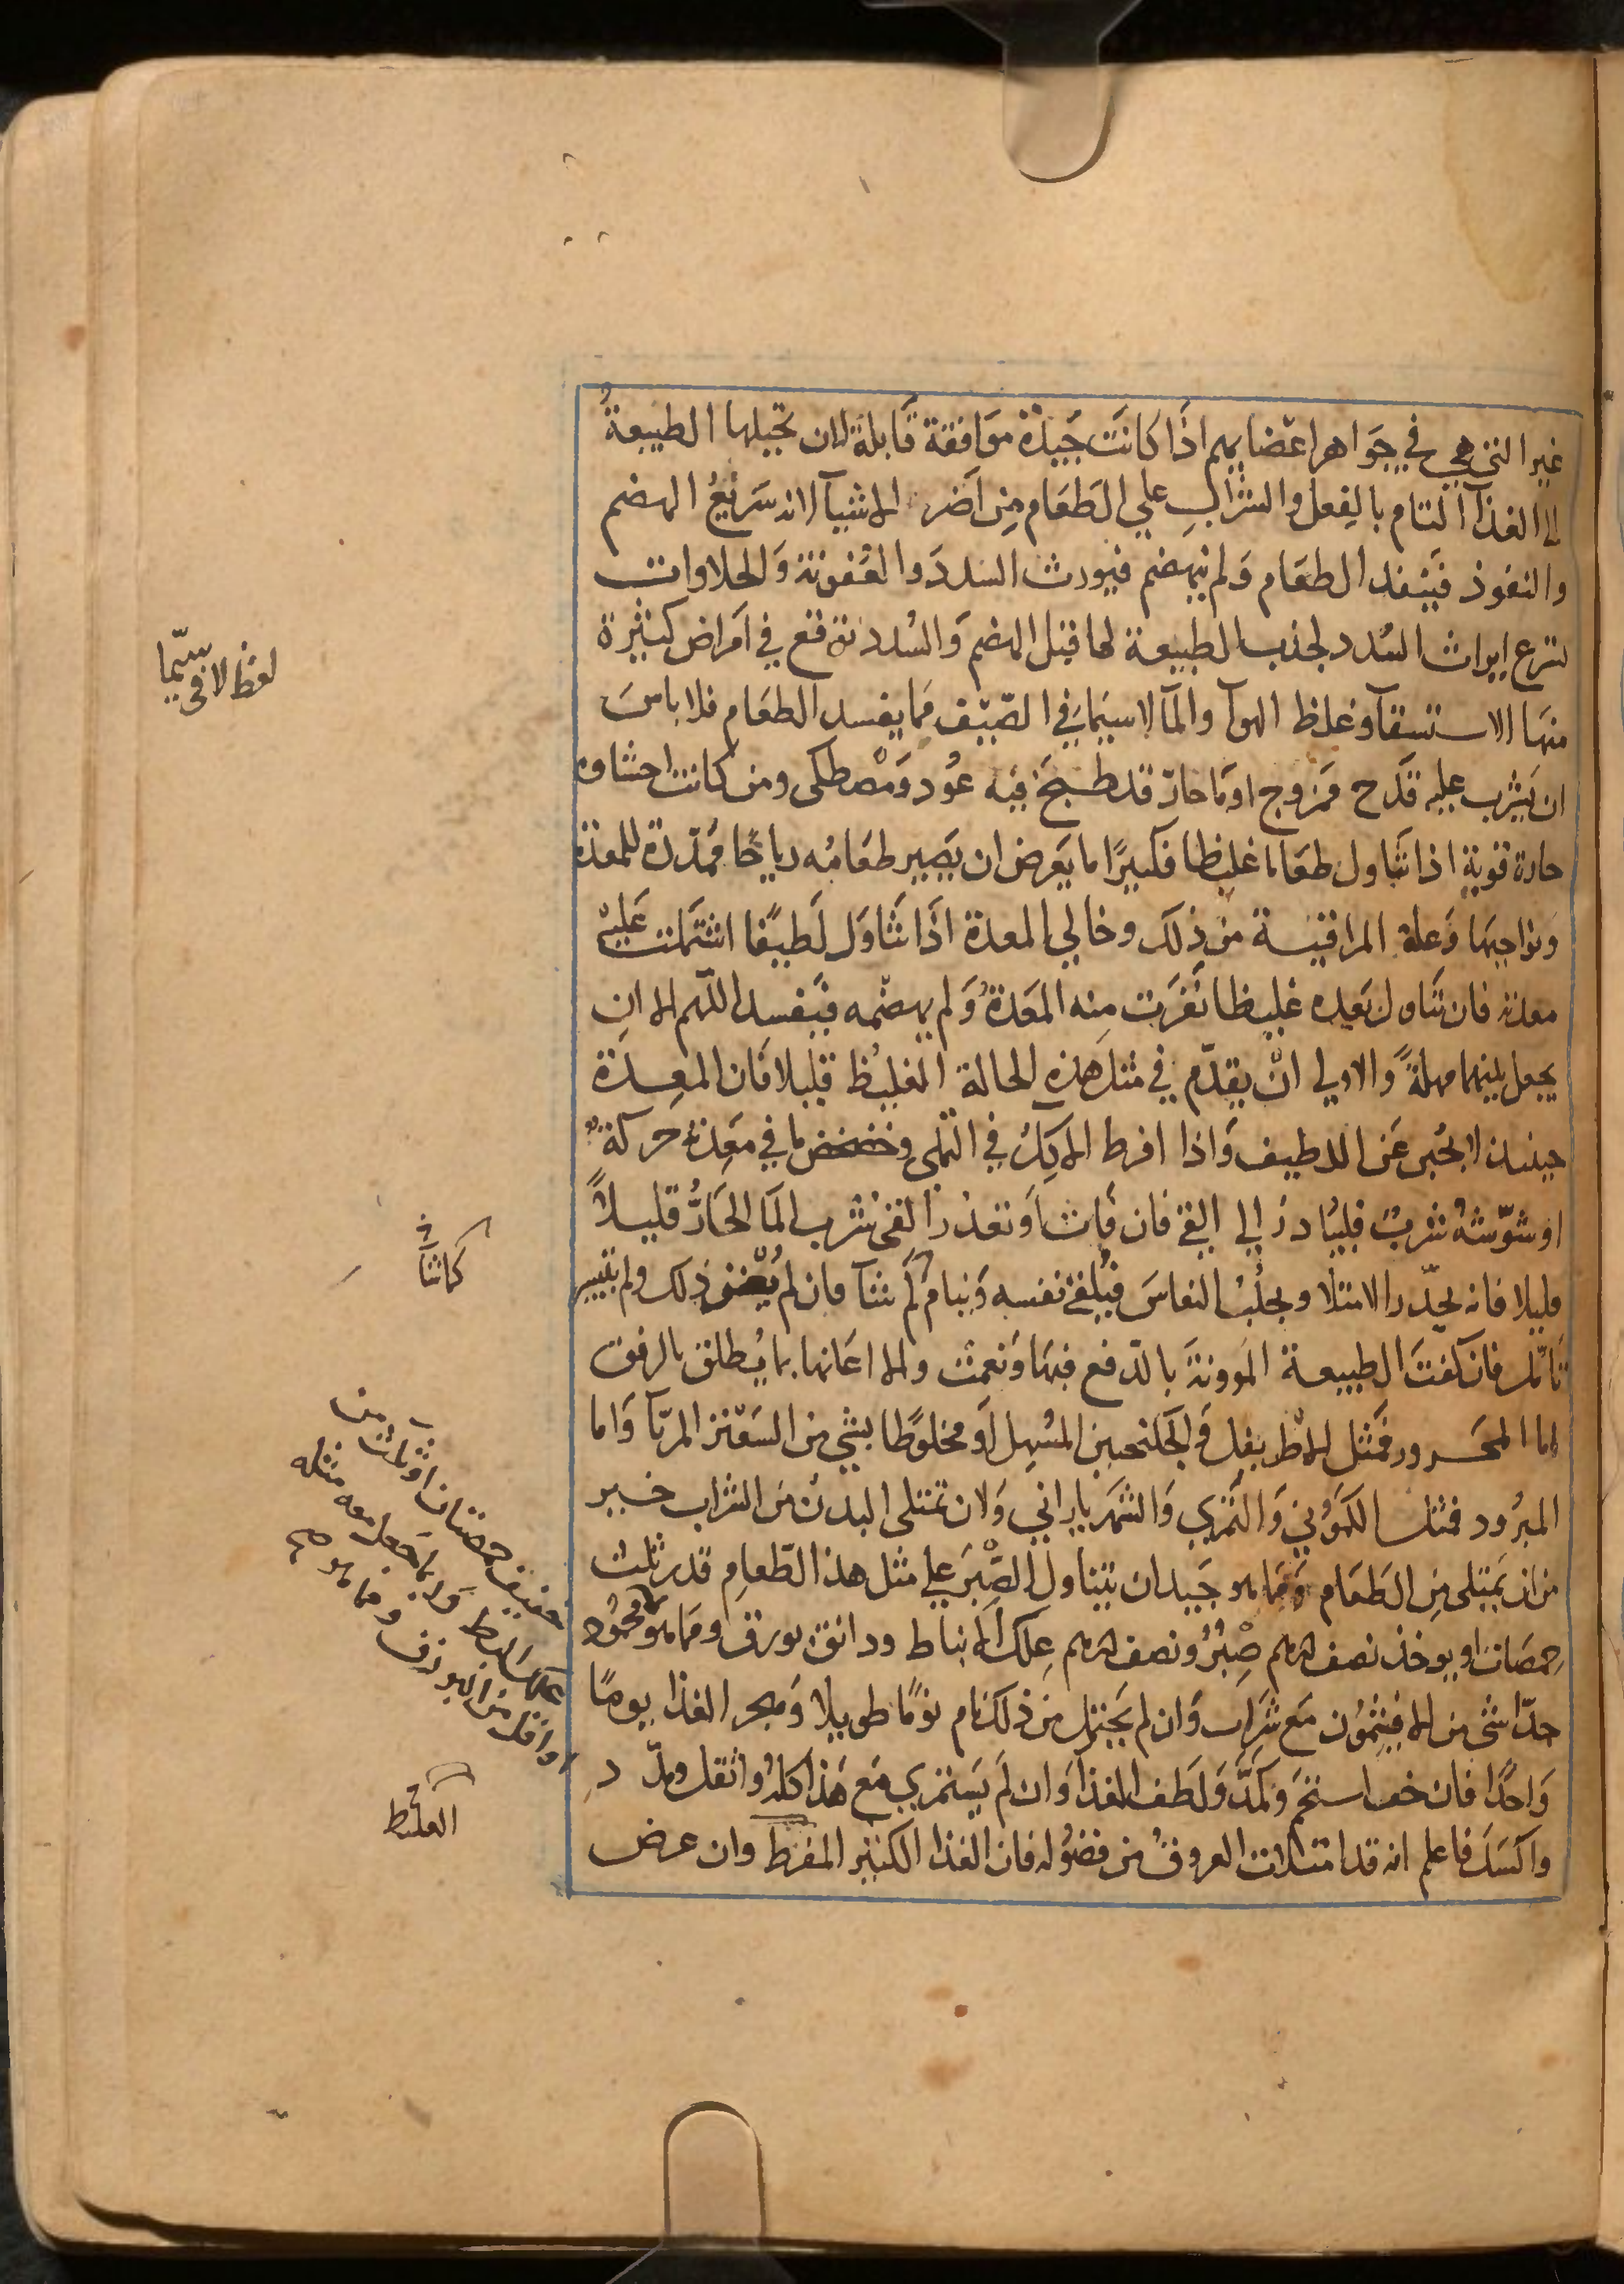 غير التي هي في جواهر اعضايهم اذا كانت جيدة موافقة قابلة لان تحيلها الطبيعة
الي الغذآ التام بالفعل والشراب علي الطعام من اضر الاشيآ لانه سريع الهضم
والنفوذ فينفذ الطعام ولم ينهضم فيورث السدد والعفونة والحلاوات
تسرع ايراث السدد لجذب الطبيعة لها قبل الهضم والسدد توقع في امراض كثيرة
منها الاستسقآ وغلظ الهوآ والمآ لاسيما في الصيف مما يفسد الطعام فلا باس
ان يشرب عليه قدح ممزوج او مآ حار قد طبخ فيه عود ومصطكى ومن كانت احشاوه
حارة قوية اذا تناول طعاما غليظا فكثيرًا ما يعرض ان يصير طعامه رياحًا ممددة للمعدة
ونواحيها وعلة المراقية من ذلك وخالي المعدة اذا تناول لطيفًا اشتملت عليه
معدته فان تناول بعده غليظا نفرت منه المعدة ولم يهضمه فيفسد اللهم الا ان
يجعل بينهما مهلة والاولي ان يقدم في مثل هذه الحالة الغليظ قليلا فان المعدة
حينيذ لا تجبن عن اللطيف واذا افرط الاكل في التملي وخضخض ما في معدته حركة
او شوشه شرب فليبادر الي القي فان فات او تعذر القي شرب المآ الحار قليلاً
قليلا فانه يحدر الامتلا ويجلب النعاس فيلقي نفسه وينام كم شآ فان لم يغن ذلك ولم يتيسر
تامل فان كفت الطبيعة المؤونة بالدفع فبها ونعمت والا اعانها بما يطلق بالرفق
اما المحرور فبمثل الاطريفل والجلنجبين المسهل او مخلوطًا بشي من السعتر المربآ واما
المبرود فمثل الكموني والتمري والشهرياراني ولان تمتلى البدن من الشراب خير
من ان يمتلى من الطعام ومما هو جيد ان يتناول الصبر علي مثل هذا الطعام قدر ثلث
حمصات او يوخذ نصف درهم صبر ونصف درهم علك الانباط ودانق بورق ومما هو محمود
جدًا شي من الافيثمون مع شراب وان لم يحتمل من ذلك نام نومًا طويلا وهجر الغذا يومًا
واحدًا فان خف استحم وكمد ولطف الغذا وان لم يستمري مع هذا كله واثقل ومدد
واكسل فاعلم انه قد امتلات العروق من فضوله فان الغذا الكثير المفرط وان عرض
لفظ لا في سيما
كما شآ
خفيف حمصتان او ثلث من
علك البطم وربما جعل معه مثله
او اقل من البورق ومما هو
الغليظ